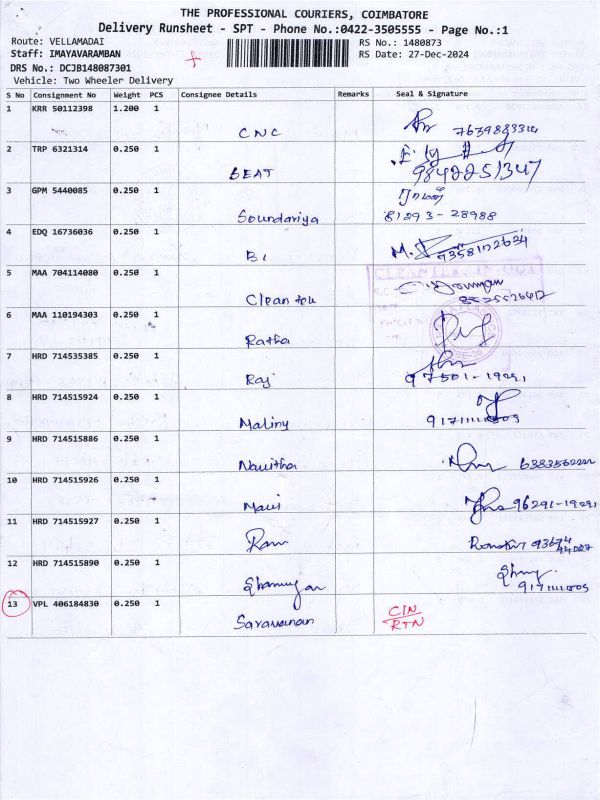 THE PROFESSIONAL COURIERS, COIMBATORE
Delivery Runsheet - SPT - Phone No.:0422-3505555 - Page No.:1
Route: VELLAMADAI RS No.: 1480873
Staff: IMAYAVARAMBAN RS Date: 27-Dec-2024
DRS No.: DCJB148087301
Vehicle: Two Wheeler Delivery
S No Consignment No Weight PCS Consignee Details Remarks Seal & Signature
1 KRR 50112398 1.200 1
CNC
2 TRP 6321314 0.250 1
BEAT 9842251347
3 GPM 5440085 0.250 1
Soundariya 81893-28988
4 EDQ 16736036 0.250 1
B1
5 MAA 704114080 0.250 1
Clean tek
6 MAA 110194303 0.250 1
Ratha
7 HRD 714535385 0.250 1
Raj 97501-19291
8 HRD 714515924 0.250 1
Maliny
9 HRD 714515886 0.250 1
Navitha
10 HRD 714515926 0.250 1
96291-19291
11 HRD 714515927 0.250 1
Ram
12 HRD 714515890 0.250 1
13 VPL 406184830 0.250 1 CIN
Saravanan RTN